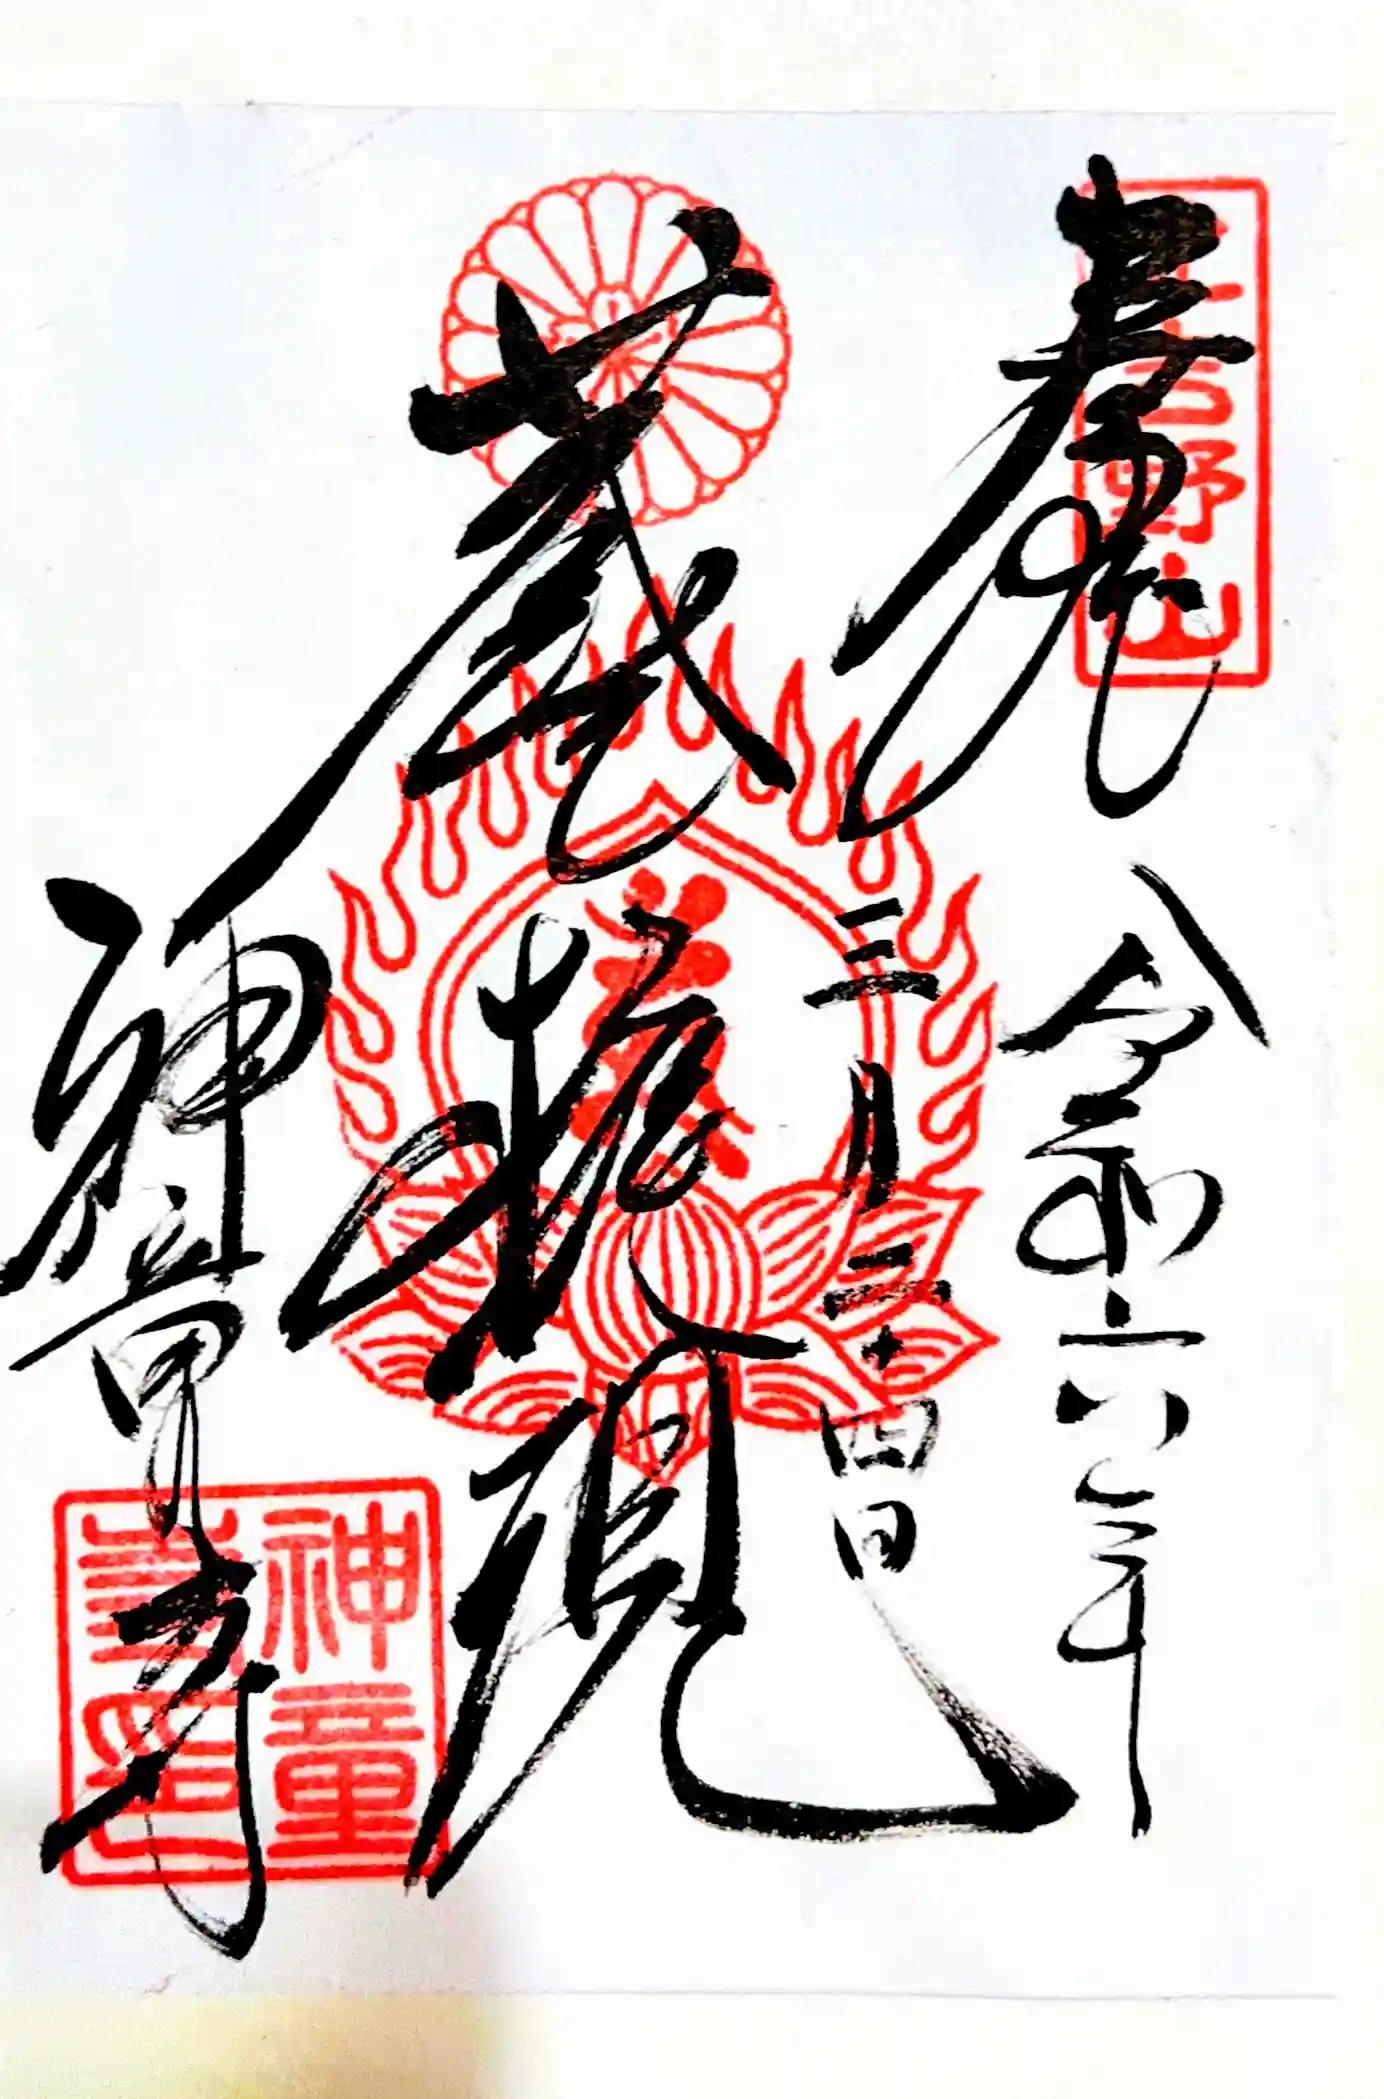 北吉野山
奉拝
令和六年
三月二十四日
蔵王権現
神童寺
神童
寺印